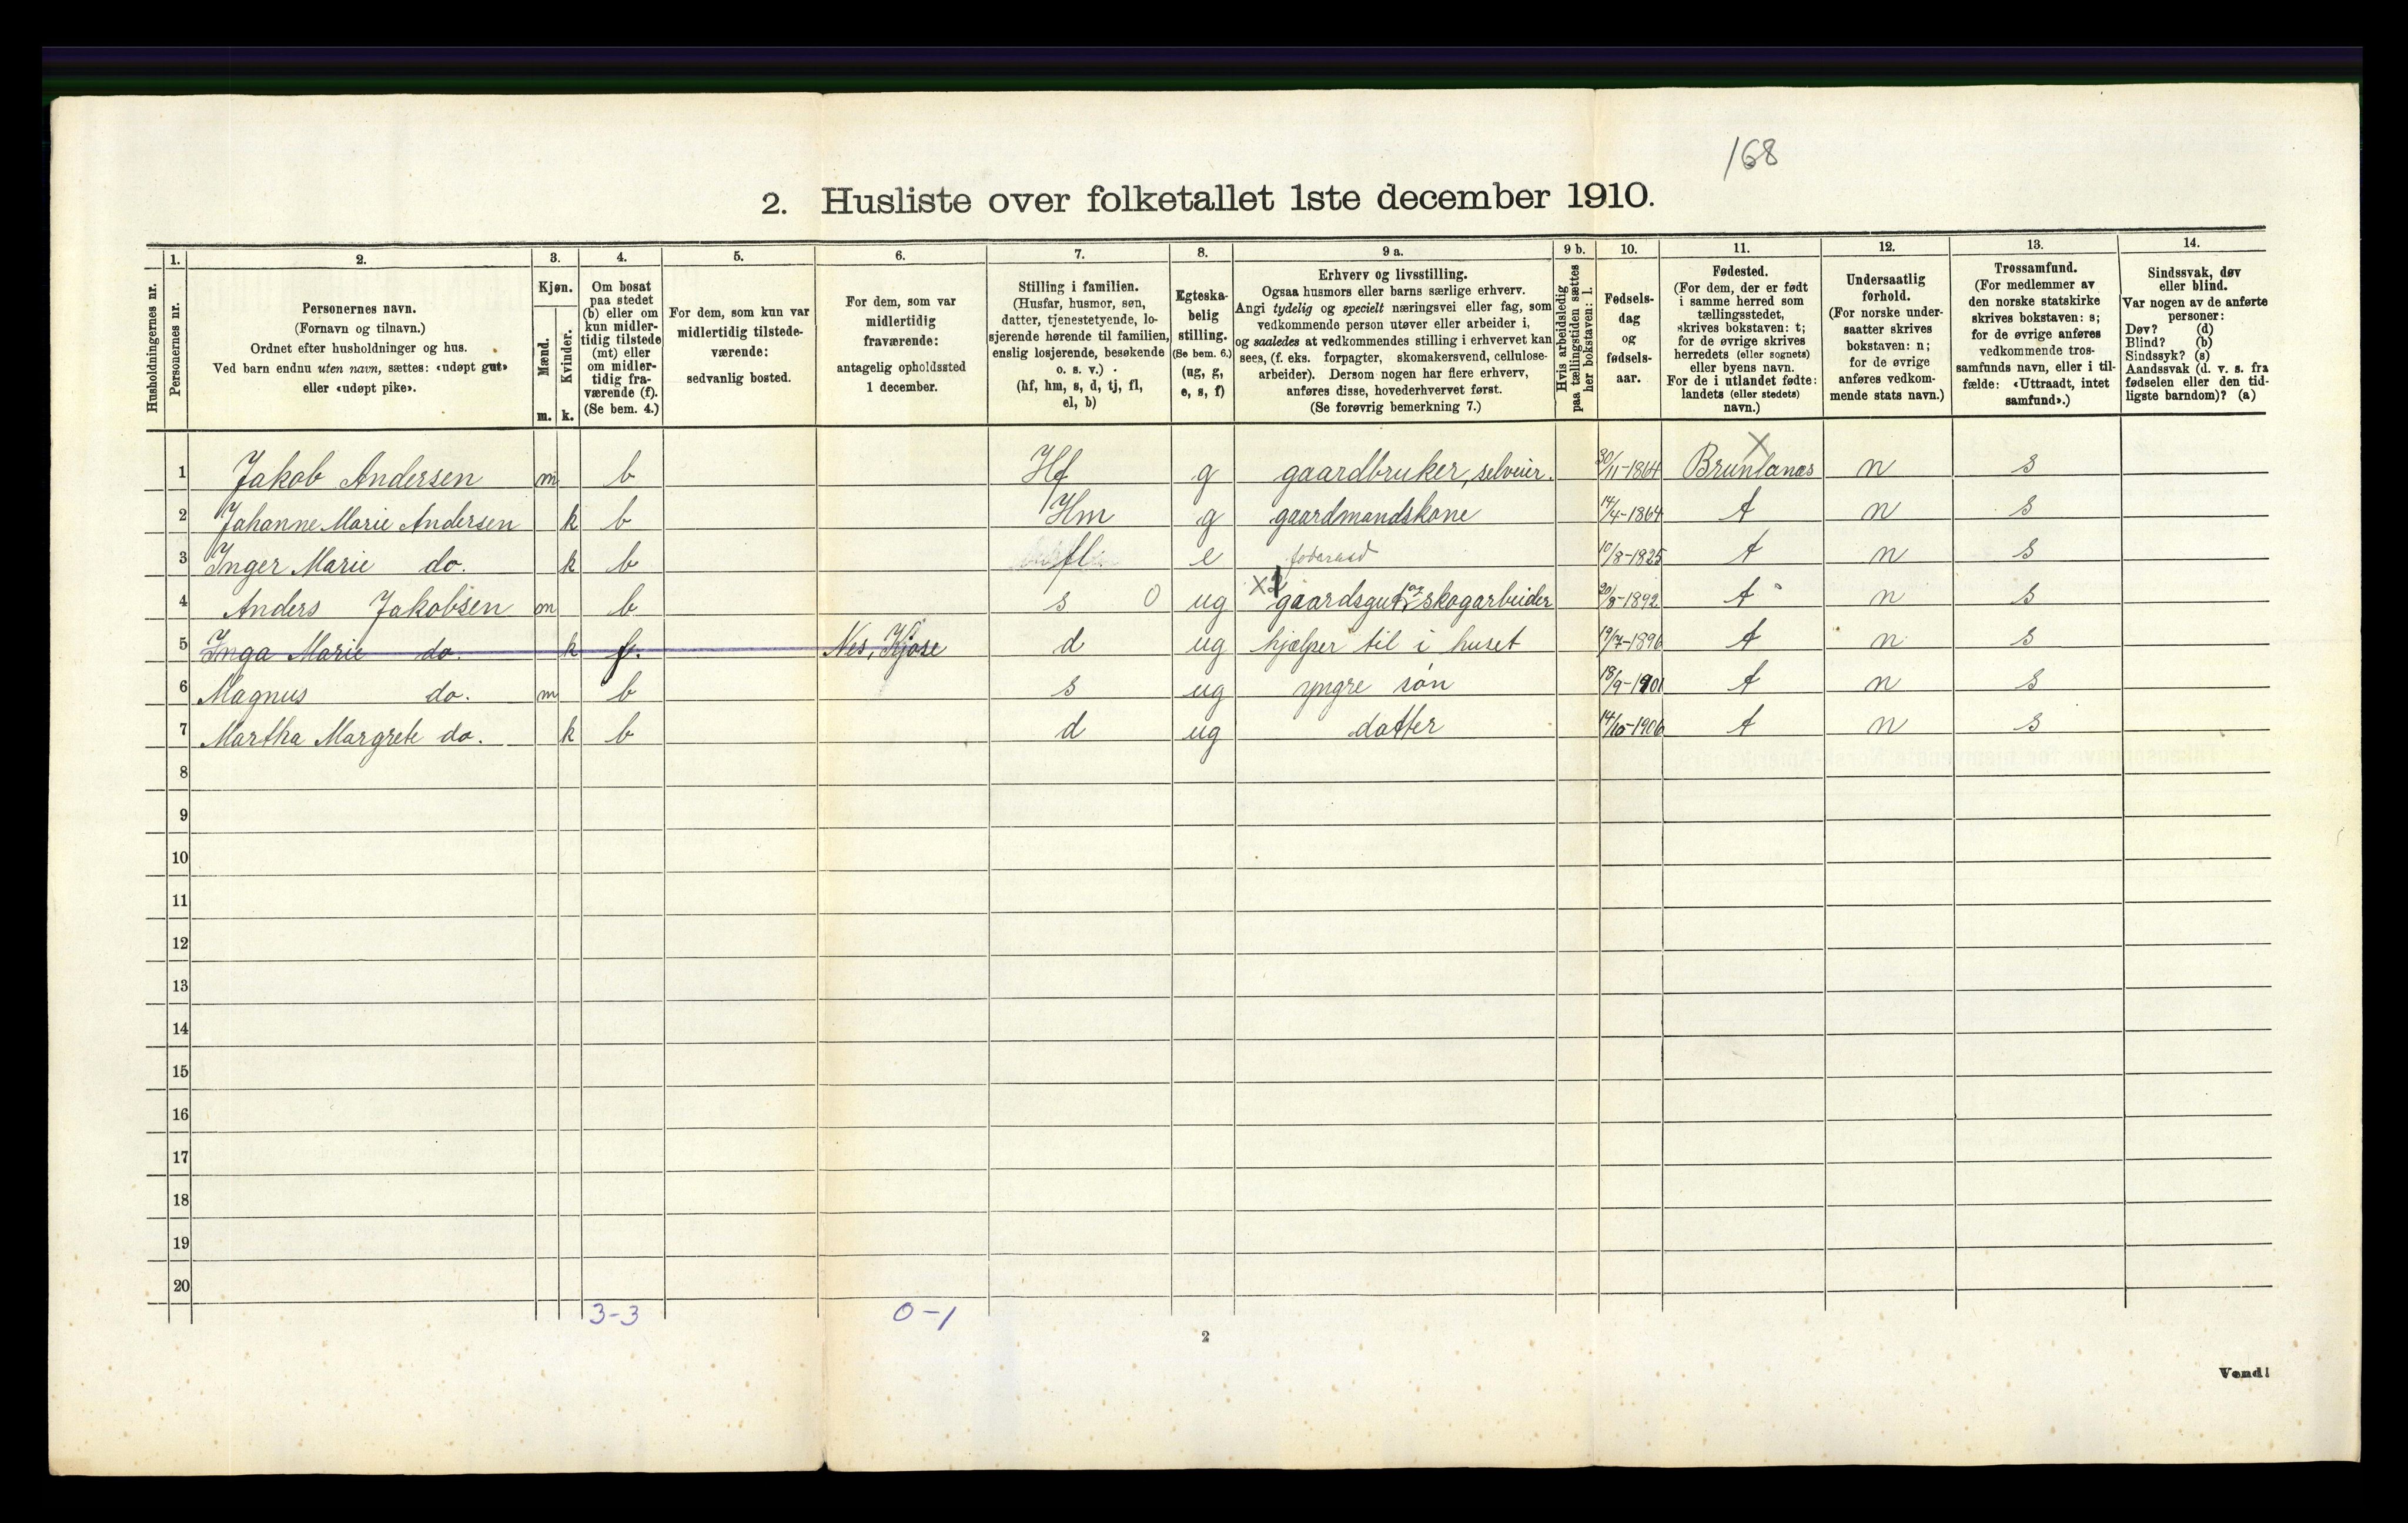 168
2. Husliste over folketallet 1ste december 1910.
Husholdningernes nr.
1. Personernes nr.
2. Personernes navn.
(Fornavn og tilnavn.)
Ordnet efter husholdninger og hus.
Ved barn endnu uten navn, sættes: «udøpt gut»
eller «udøpt pike».
3. Kjøn.
Mænd. m.
Kvinder. k.
4. Om bosat
paa stedet
(b) eller om
kun midler-
tidig tilstede
(mt) eller
om midler-
tidig fra-
værende (f).
(Se bem. 4.)
5. For dem, som kun var
midlertidig tilstede-
værende:
sedvanlig bosted.
6. For dem, som var
midlertidig
fraværende:
antagelig opholdssted
1 december.
7. Stilling i familien.
(Husfar, husmor, søn,
datter, tjenestetyende, lo-
sjerende hørende til familien,
enslig losjerende, besøkende
o. s. v.)
(hf, hm, s, d, tj, fl,
el, b)
8. Egteska-
belig
stilling.
(Se bem. 6.)
(ug, g,
e, s, f)
9 a. Erhverv og livsstilling.
Ogsaa husmors eller barns særlige erhverv.
Angi tydelig og specielt næringsvei eller fag, som
vedkommende person utøver eller arbeider i,
og saaledes at vedkommendes stilling i erhvervet kan
sees, (f. eks. forpagter, skomakersvend, cellulose-
arbeider). Dersom nogen har flere erhverv,
anføres disse, hovederhvervet først.
(Se forøvrig bemerkning 7.)
9 b. Hvis arbeidsledig
paa tællingstiden sættes
her bokstaven: l.
10. Fødsels-
dag
og
fødsels-
aar.
11. Fødested.
(For dem, der er født
i samme herred som
tællingsstedet,
skrives bokstaven: t;
for de øvrige skrives
herredets (eller sognets)
eller byens navn.
For de i utlandet fødte:
landets (eller stedets)
navn.)
12. Undersaatlig
forhold.
(For norske under-
saatter skrives
bokstaven: n;
for de øvrige
anføres vedkom-
mende stats navn.)
13. Trossamfund.
(For medlemmer av
den norske statskirke
skrives bokstaven: s;
for de øvrige anføres
vedkommende tros-
samfunds navn, eller i til-
fælde: «Uttraadt, intet
samfund».)
14. Sindssvak, døv
eller blind.
Var nogen av de anførte
personer:
Døv? (d)
Blind? (b)
Sindssyk? (s)
Aandssvak (d. v. s. fra
fødselen eller den tid-
ligste barndom)? (a)
1 Jakob Andersen m b Hf g gaardbruker, selveier. 30/11-1864 Brunlanæs n s
2 Johanne Marie Andersen k b Hm g gaardmandskone 14/4-1864 t n s
3 Inger Marie do. k b fl. e foderaad 10/8-1825 t n s
4 Anders Jakobsen m b s 0 ug x2 gaardsgut og skogarbeider 20/8-1892 t n s
5 Inga Marie do. k f. Nes, Kjose d ug hjælper til i huset 19/7-1896 t n s
6 Magnus do. m b s ug yngre søn 18/9-1901 t n s
7 Martha Margrete do. k b d ug datter 14/10-1906 t n s
8
9
10
11
12
13
14
15
16
17
18
19
20
3-3 0-1
2
Vend!